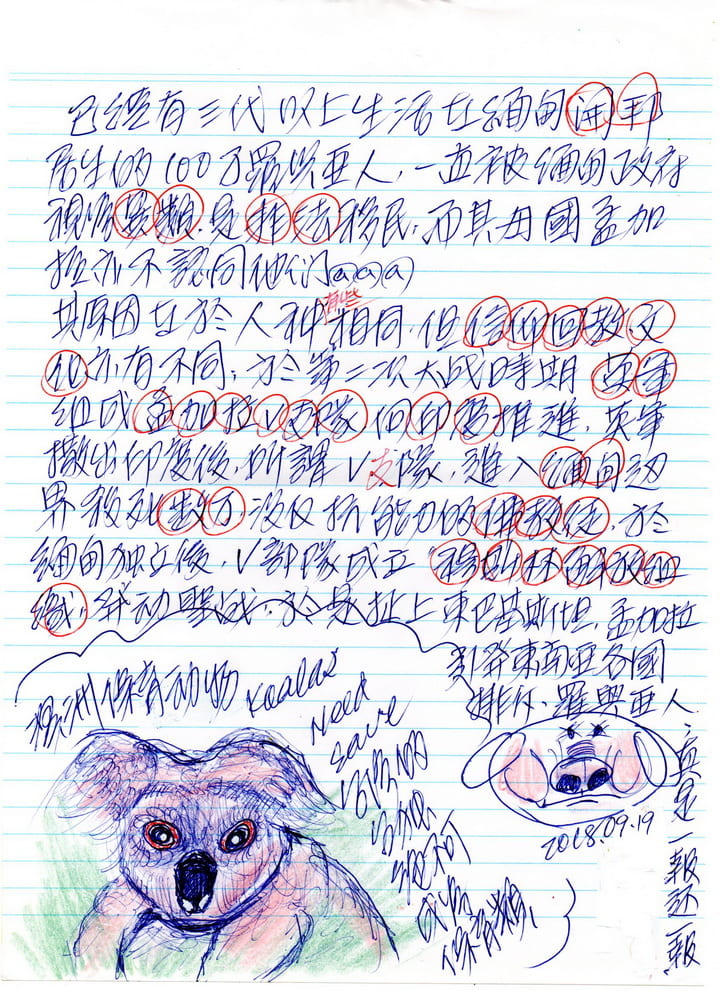 已經有三代以上生活在緬甸開邦
居生的100万羅興亞人,一直被緬甸政府
視為異類,是非法移民,而其母國孟加
拉亦不認同他们@@@
其原因在於人种有些相同,但信仰回教,文
化亦有不同,於第二次大战時期英軍
組成孟加拉V支隊向印度推進,英軍
撤出印度後,所謂V支隊,進入緬甸边
界殺死數万没反抗能力的佛教徒,於
緬甸独立後,V部隊成立穆斯林解放組
織,発动聖战,於是扯上東巴基斯坦,孟加拉
引発東南亚各國
排斥,羅興亚人
:真是一報还一報
澳洲保育动物 Koalas
Need
Save
成為
保育類,
2018.09.19